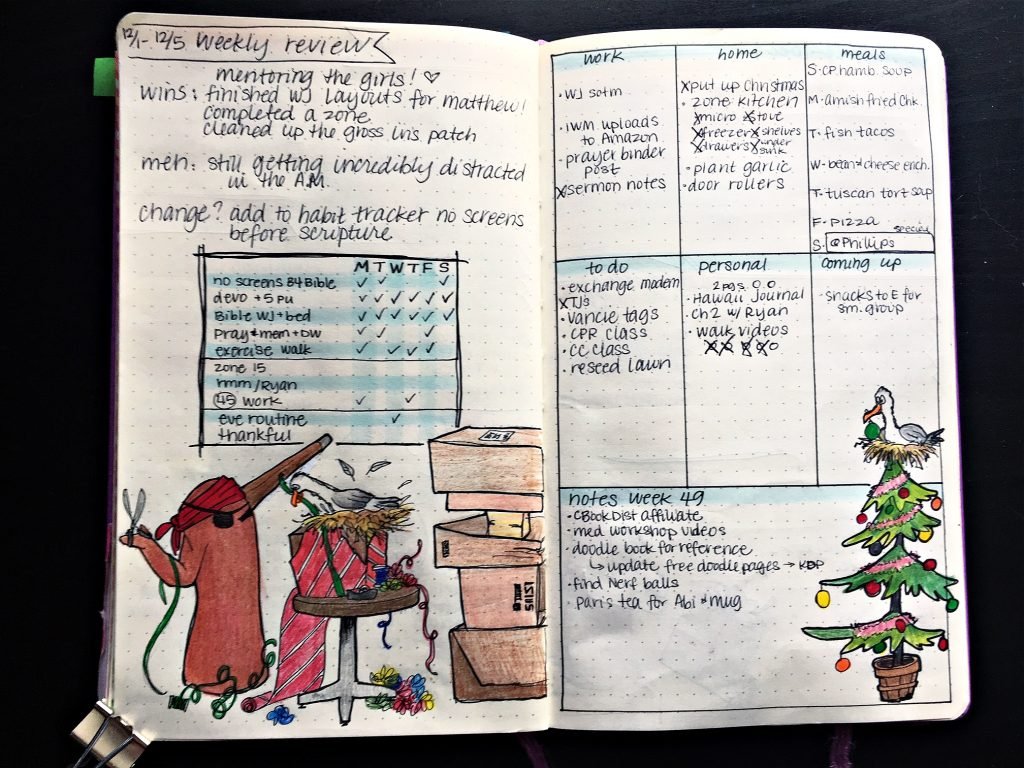 12/1-12/5 weekly review
mentoring the girls! ♡
wins: finished WJ Layouts for matthew!
completed a zone
cleaned up the gross ins. patch
meh: still getting incredibly distracted
in the A.M.
change? add to habit tracker no screens
before scripture
M T W T F S
no screens B4 Bible ✓ ✓ ✓
devo + 5 pu ✓ ✓ ✓ ✓ ✓ ✓
Bible WJ + bed ✓ ✓ ✓ ✓ ✓ ✓
pray + mem + DW ✓ ✓ ✓
exercise walk ✓ ✓ ✓ ✓
zone 15
rmm/Ryan
45 work ✓ ✓
eve routine ✓
thankful
work
· WJ sotm
· IWM uploads
to Amazon
· prayer binder
post
X sermon notes
home
X put up Christmas
· zone kitchen
X micro X stove
X freezer X shelves
X drawers X under
sink
· plant garlic
· door rollers
meals
S· CP. hamb. soup
M· amish fried chk.
T· fish tacos
W· bean & cheese ench.
T· tuscan tort soup
F· pizza
special
S· @Phillips
to do
· exchange modem
X TJs
· vancie tags
· CPR class
· CC class
· reseed lawn
personal
2 pgs. O O
· Hawaii Journal
· Ch 2 w/ Ryan
· walk videos
coming up
· snacks to E for
sm. group
notes week 49
· CBookDist affiliate
· med workshop videos
· doodle book for reference
↳ update free doodle pages → KDP
· find Nerf balls
· Paris tea for Abi & mug